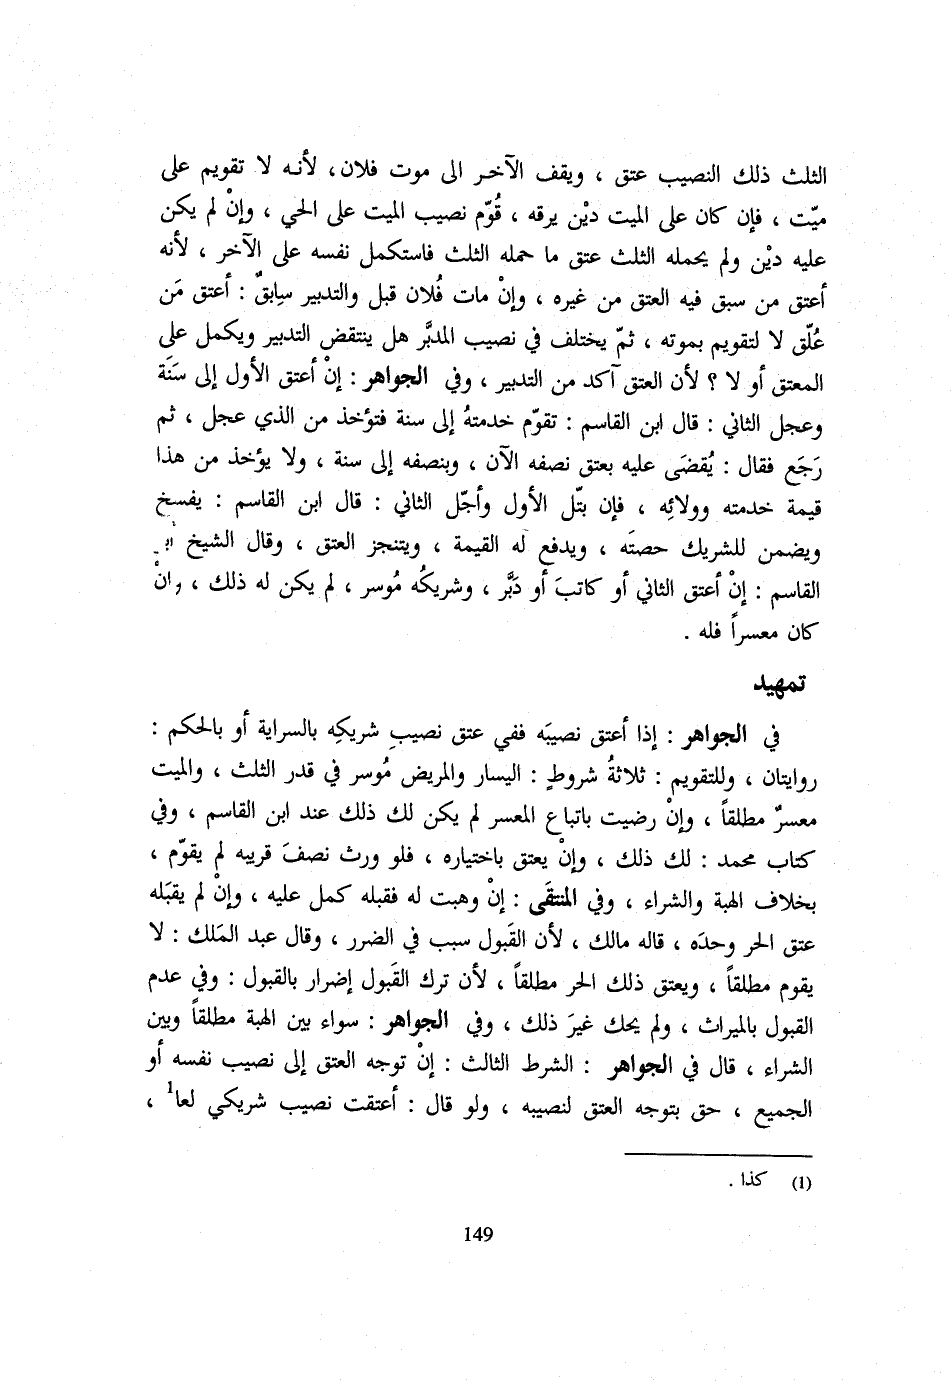 الثلث ذلك النصيب عتق ، ويقف الآخر الى موت فلان، لأنه لا تقويم على
ميّت ، فإن كان على الميت ديْن يرقه ، قُوّم نصيب الميت على الحي ، وإنْ لم يكن
عليه ديْن ولم يحمله الثلث عتق ما حمله الثلث فاستكمل نفسه على الآخر ، لأنه
أعتق من سبق فيه العتق من غيره ، وإنْ مات فُلان قبل والتدبير سابقٌ : أعتق مَن
عُلّق لا لتقويم بموته ، ثمّ يختلف في نصيب المدبَّر هل ينتقض التدبير ويكمل على
المعتق أو لا ؟ لأن العتق آكد من التدبير ، وفي الجواهر : إنْ أعتق الأول إلى سَنَة
وعجل الثاني : قال ابن القاسم : تقوّم خدمتهُ إلى سنة فتؤخذ من الذي عجل ، ثم
رَجَع فقال : يُقضَى عليه بعتق نصفه الآن ، وبنصفه إلى سنة ، ولا يؤخذ من هذا
قيمة خدمته وولائِه ، فإن بتّل الأول وأجّل الثاني : قال ابن القاسم : يفسخ
ويضمن للشريك حصتَه ، ويدفع له القيمة ، ويتنجز العتق ، وقال الشيخ
القاسم : إنْ أعتق الثاني أو كاتبَ أو دَبَّر ، وشريكُه مُوسر ، لم يكن له ذلك ، وانْ
كان معسراً فله .
تمهيد
في الجواهر : إذا أعتق نصيبَه ففي عتق نصيبِ شريكِه بالسراية أو بالحكم :
روايتان ، وللتقويم : ثلاثةُ شروطٍ : اليسار والمريض مُوسر في قدر الثلث ، والميت
معسرٌ مطلقاً ، وإنْ رضيت باتباع المعسر لم يكن لك ذلك عند ابن القاسم ، وفي
كتاب محمد : لك ذلك ، وإنْ يعتق باختياره ، فلو ورث نصفَ قريبه لم يقوّم ،
بخلاف الهبة والشراء ، وفي المنتقَى : إنْ وهبت له فقبله كمل عليه ، وإنْ لم يقبَله
عتق الحر وحدَه ، قاله مالك ، لأن القَبول سبب في الضرر ، وقال عبد المَلك : لا
يقوم مطلقاً ، ويعتق ذلك الحر مطلقاً ، لأن ترك القَبول إضرار بالقبول : وفي عدم
القبول بالميراث ، ولم يحك غيرَ ذلك ، وفي الجواهر : سواء بين الهبة مطلقاً وبين
الشراء ، قال في الجواهر : الشرط الثالث : إنْ توجه العتق إلى نصيب نفسه أو
الجميع ، حق بتوجه العتق لنصيبه ، ولو قال : أعتقت نصيب شريكي لعا¹ ،
(1) كذا .
149